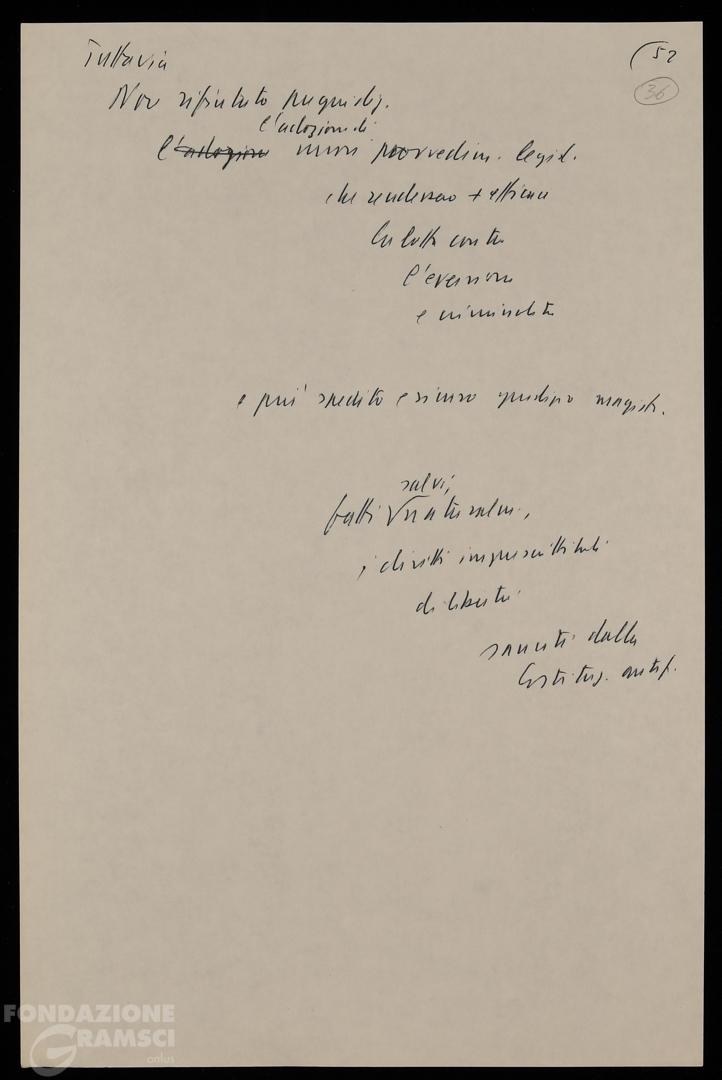 Tuttavia
52
36
Non rifiutato pregiudiz.
l'adozione di
l'adozione nuovi provvedim. legisl.
che rendessero + efficace
la lotta contro
l'eversione
e criminalità
e più spedito e sicuro giudizio magistr.
salvi,
fatti naturalm.,
i diritti imprescrittibili
di libertà
sanciti dalla
Costituz. antif.
FONDAZIONE
GRAMSCI
onlus